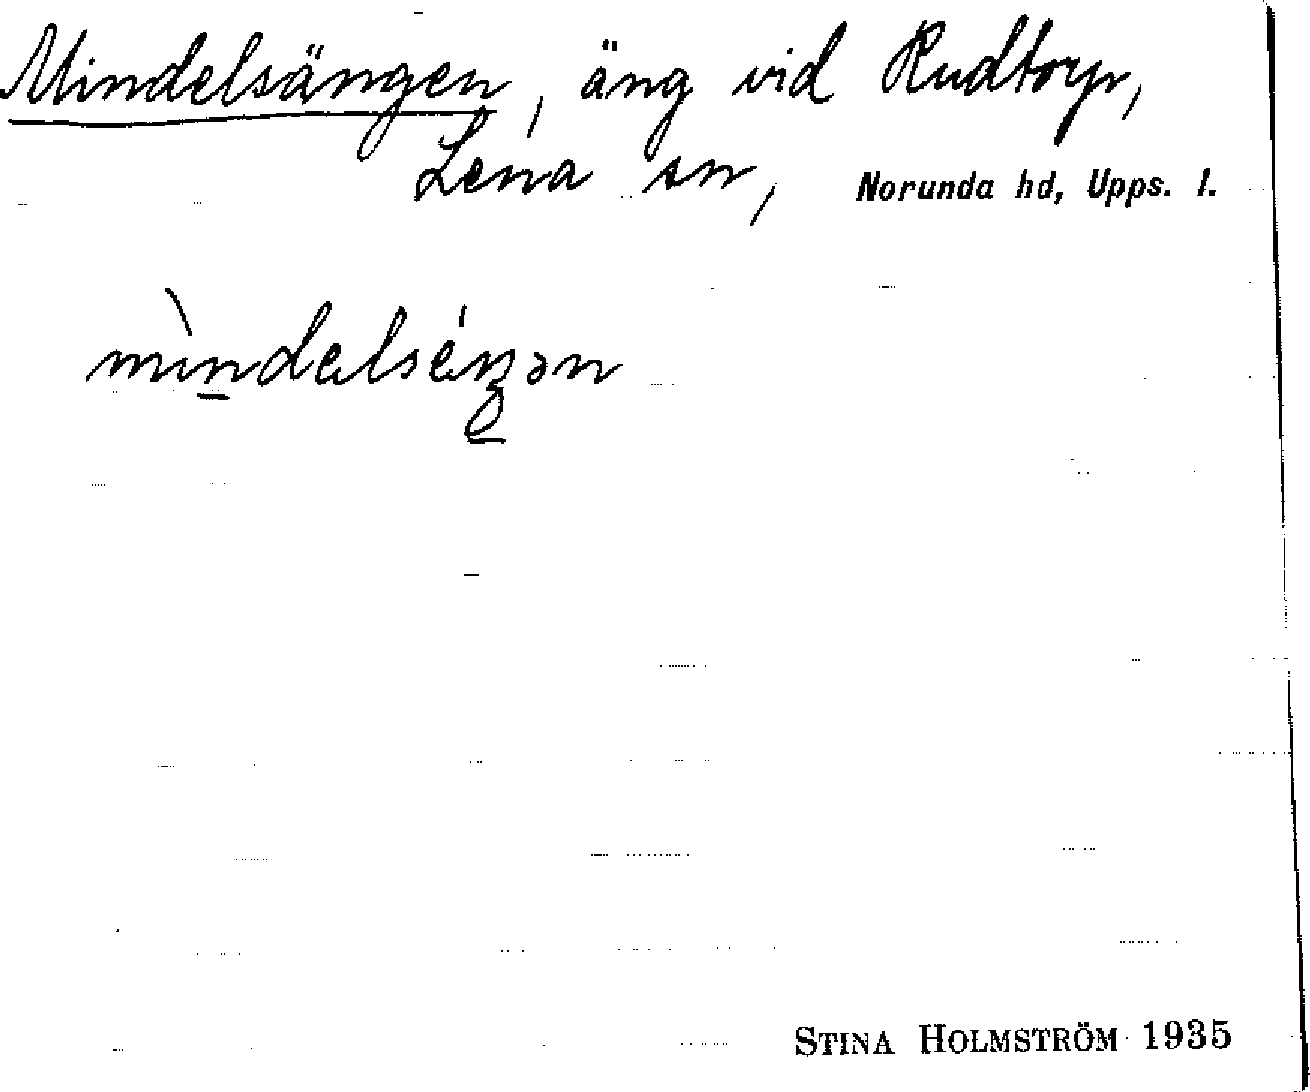 Mindelsängen, äng vid Rudtorp,
Lena sn, Norunda hd, Upps. l.
mìndelséŋən
STINA HOLMSTRÖM 1935